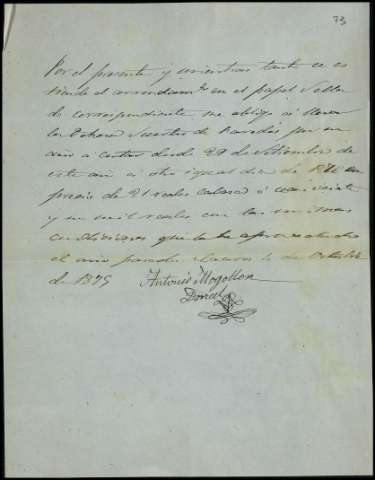 73
Por el presente y mientras tanto se es
tiende el arrendamto en el papel Sella
do correspondiente me obligo á llevar
la Dehesa Suertes de Paredes por un
año a contar desde 29 de Setiembre de
este año á otro igual dia de 1876 en
precio de 21 reales cabeza ó sean veinte
y un mil reales con las mismas
condiciones que la he aprovechado
el año pasado Cáceres 4 de Octubre
de 1875
Antonio Mogollon
Donoso